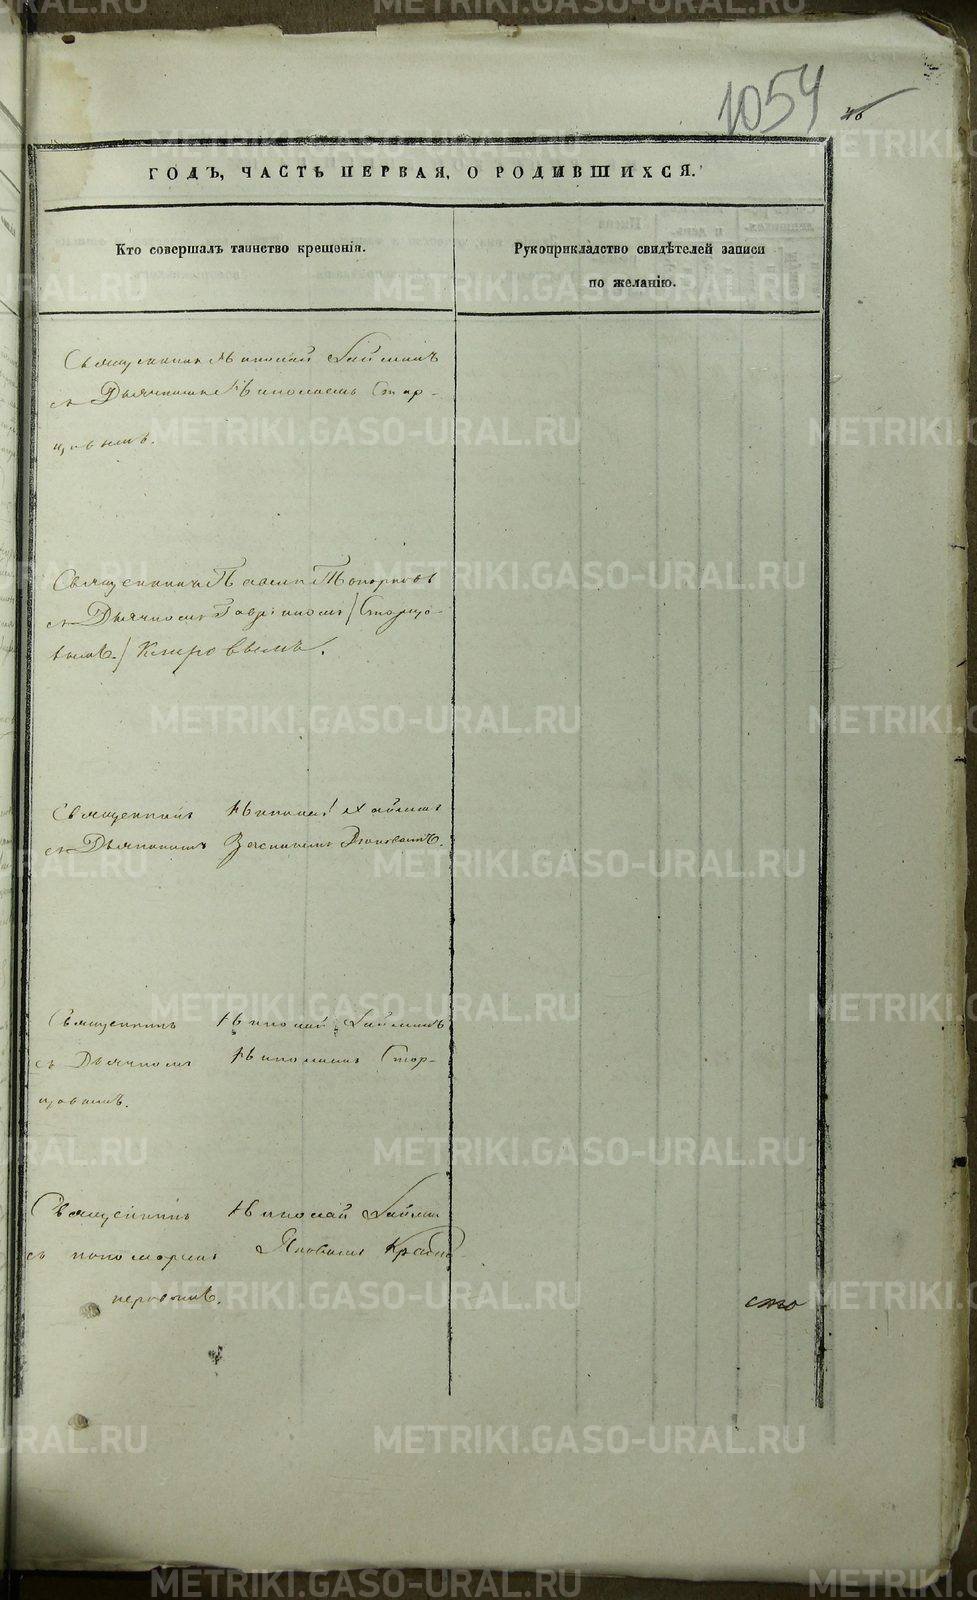 1054
46
ГОДЪ, ЧАСТЬ ПЕРВАЯ, О РОДИВШИХСЯ.
Кто совершалъ таинство крещенія.
Рукоприкладство свидѣтелей записи
по желанію.
Священникъ Николай
съ Дьячкомъ Николаемъ Стар-
цовымъ.
Священникъ Павелъ Топорковъ
съ Дьячкомъ Гавріиломъ / Старцо-
вымъ. / Кировымъ.
Священникъ Николай
съ Дьячкомъ
Священникъ Николай
съ Дьячкомъ Николаемъ Стар-
цовымъ.
Священникъ Николай
съ пономаремъ Яковомъ
сто
METRIKI.GASO-URAL.RU